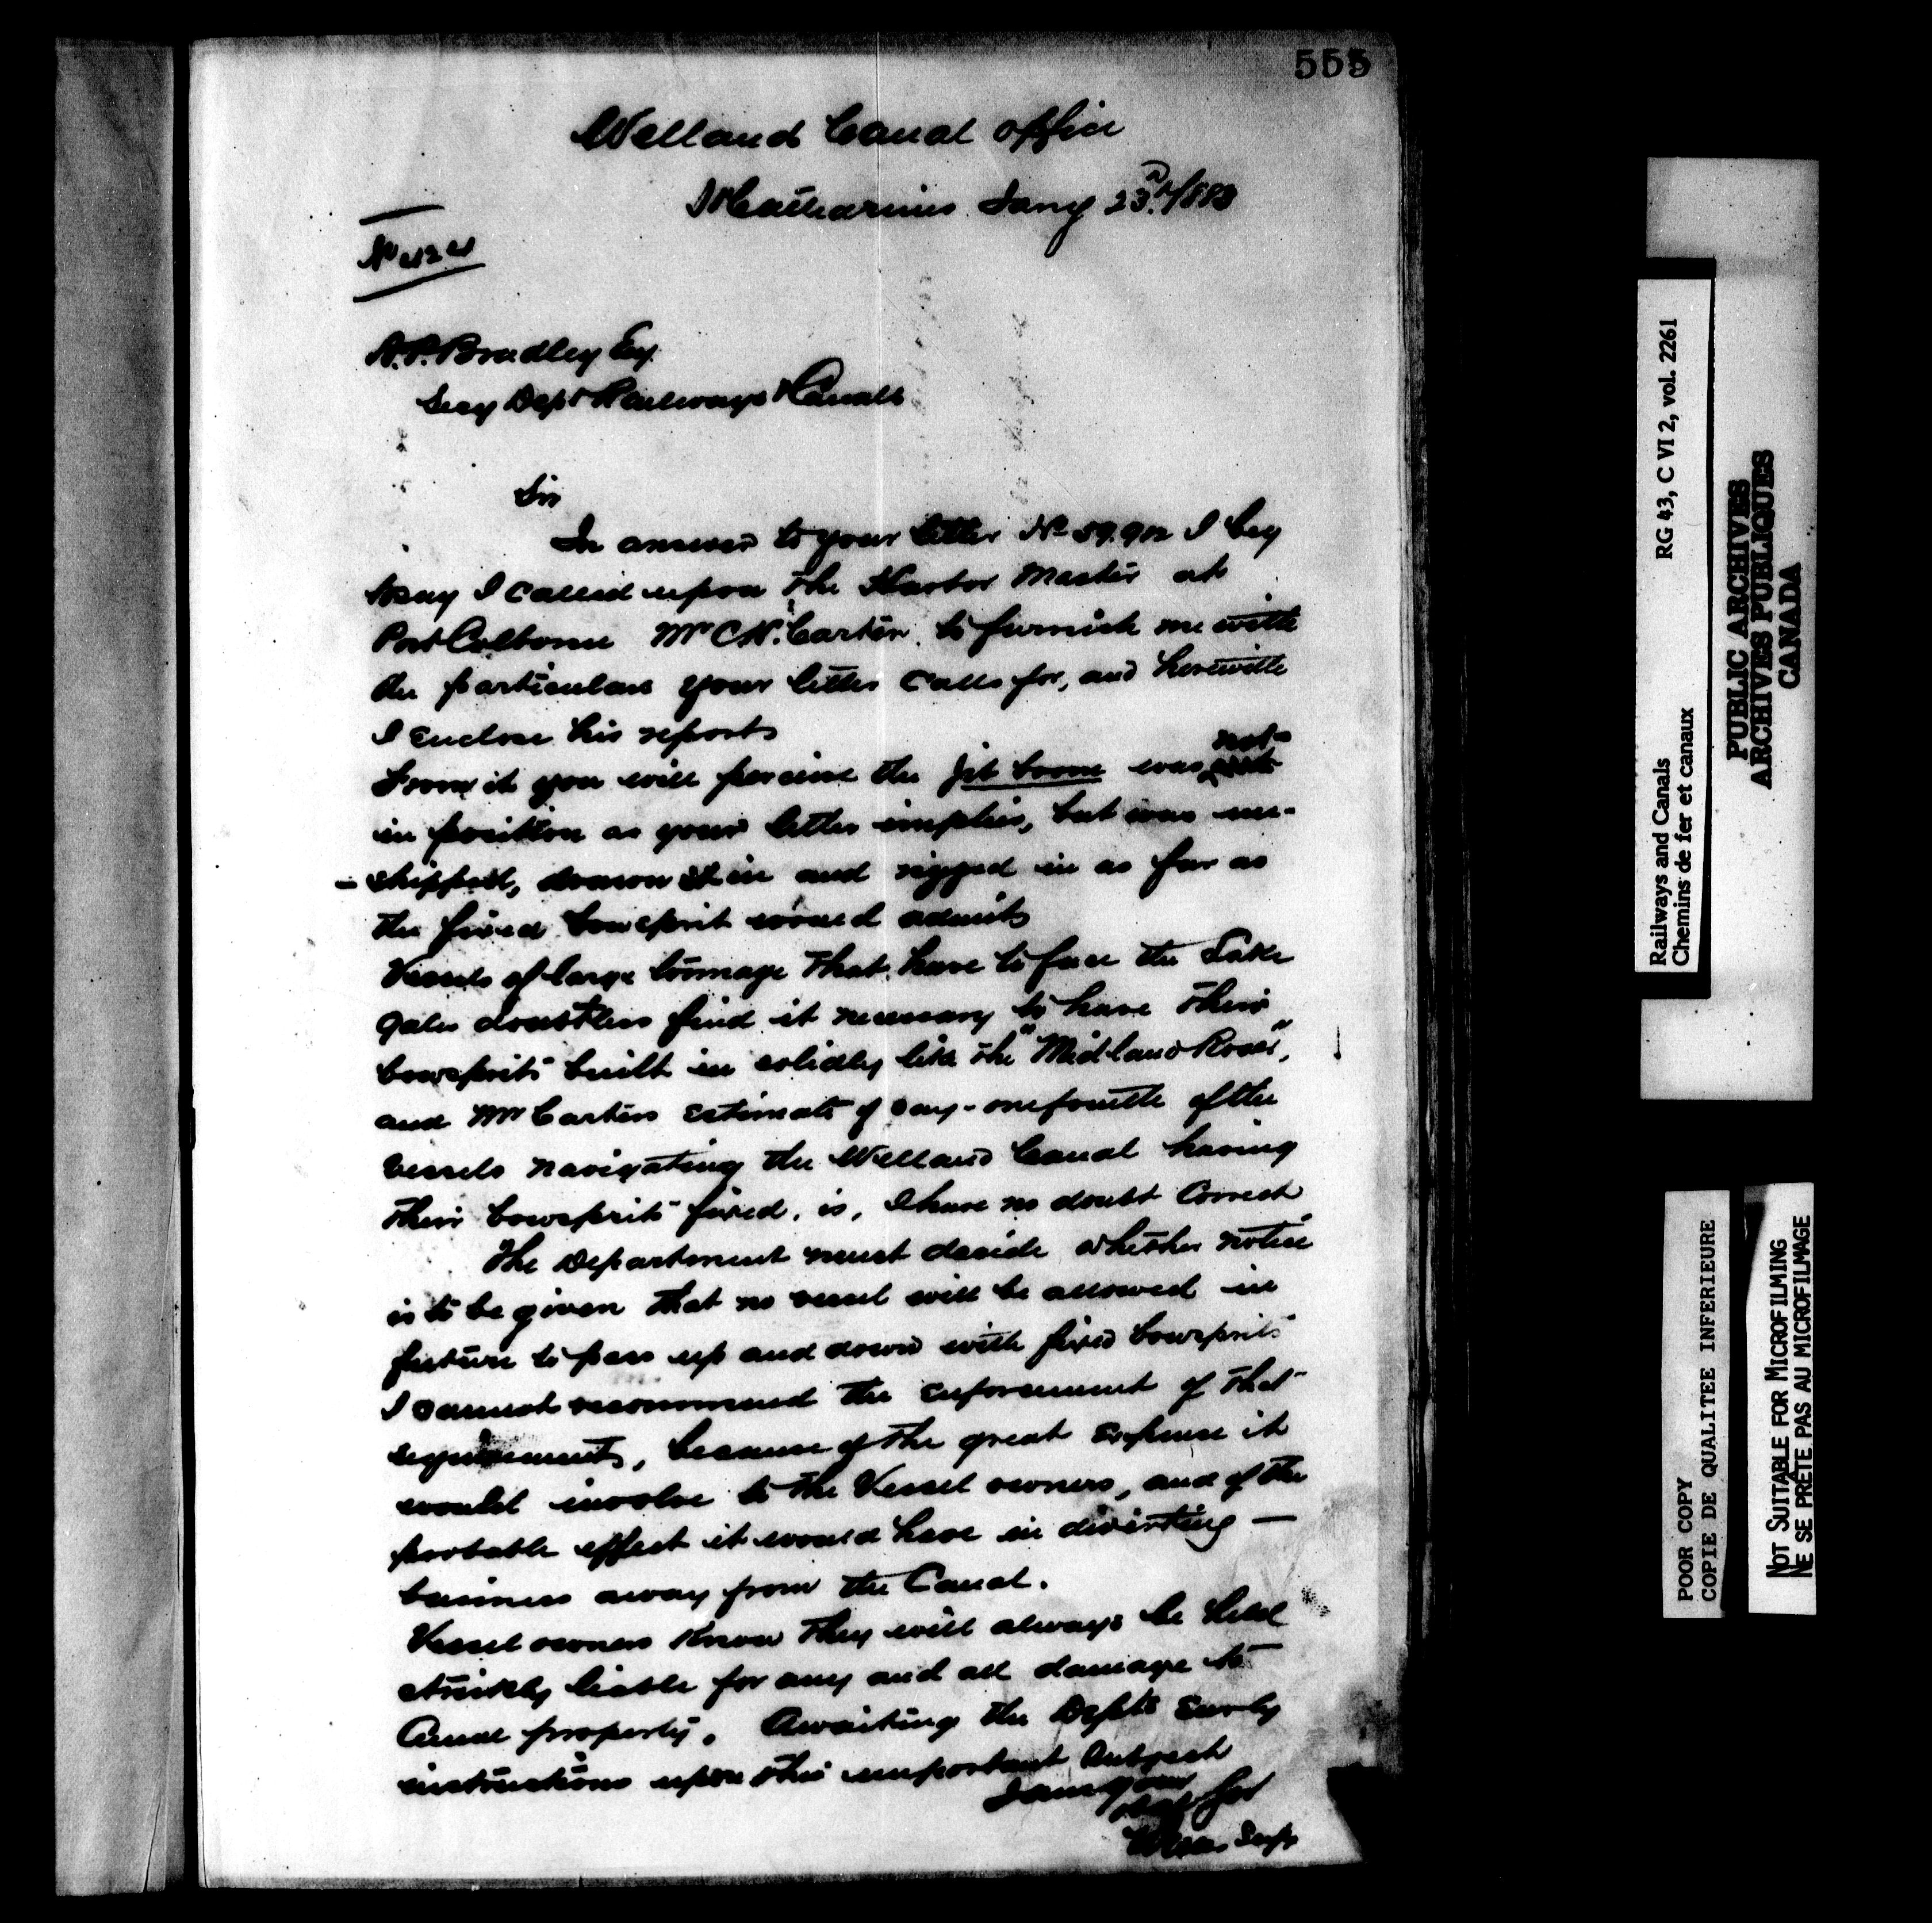 555
Welland Canal Office
St Catharines Jany 23rd 1883
No 424
A.P. Bradley Esq
Secy Dept Railways & Canals
Sir
In answer to your letter No 39.902 I beg
to say I called upon the Harbor Master at
Port Colborne Mr C.N. Carter to furnish me with
the particulars your letter calls for, and herewith
I enclose his report
From it you will perceive the jib boom was not
in position as your letter implies, but was un-
-shipped, drawn in and rigged in as far as
the fixed bowsprit would admit
Vessels of large tonnage that have to face the Lake
gales doubtless find it necessary to have their
bowsprits built in solidly like the "Midland Rover",
and Mr Carters estimate of say - one fourth of the
vessels navigating the Welland Canal having
their bowsprits fixed, is, I have no doubt correct
The Department must decide whether notice
is to be given that no vessel will be allowed in
future to pass up and down with fixed bowsprits
I cannot recommend the enforcement of that
requirement, because of the great expense it
would involve to the Vessel owners, and of the
probable effect it would have in diverting —
business away from the Canal.
Vessel owners know they will always be held
strictly liable for any and all damage to
Canal property. Awaiting the Depts early
instructions upon this important subject
I am your
obt Svt
Supt
Railways and Canals RG 43, C VI 2, vol. 2261
Chemins de fer et canaux
PUBLIC ARCHIVES
ARCHIVES PUBLIQUES
CANADA
POOR COPY
COPIE DE QUALITEE INFERIEURE
NOT SUITABLE FOR MICROFILMING
NE SE PRÊTE PAS AU MICROFILMAGE